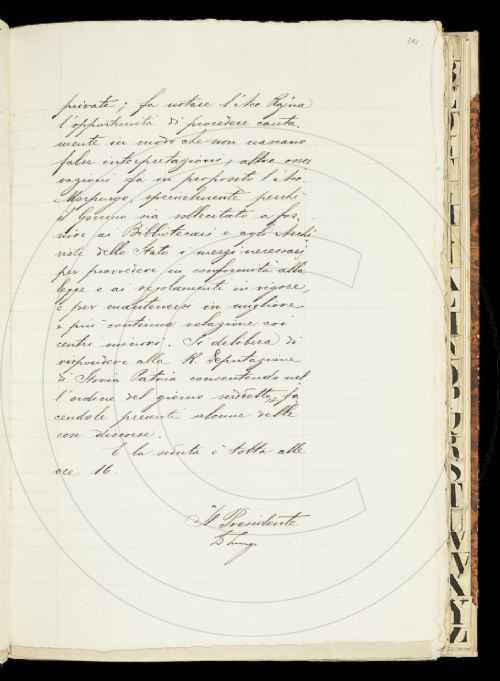 private; fa notare l'Acc. Rajna
l'opportunità di procedere cauta-
mente in modo che non nascano
false interpretazioni, altre osser
vazioni fa in proposito l'Acc.
Morpurgo, specialmente perchè
il Governo sia sollecitato a for-
nire ai Bibliotecari e agli Archi
visti dello Stato i mezzi necessarj
per provvedere in conformità alla
legge e ai regolamenti in vigore,
e per mantenersi in migliore
e più continua relazione coi
centri minori. Si delibera di
rispondere alla R. Deputazione
di Storia Patria consentendo nel
l'ordine del giorno suddetto, fa
cendole presenti alcune delle
cose discorse.
E la seduta è tolta alle
ore 16.
Il Presidente